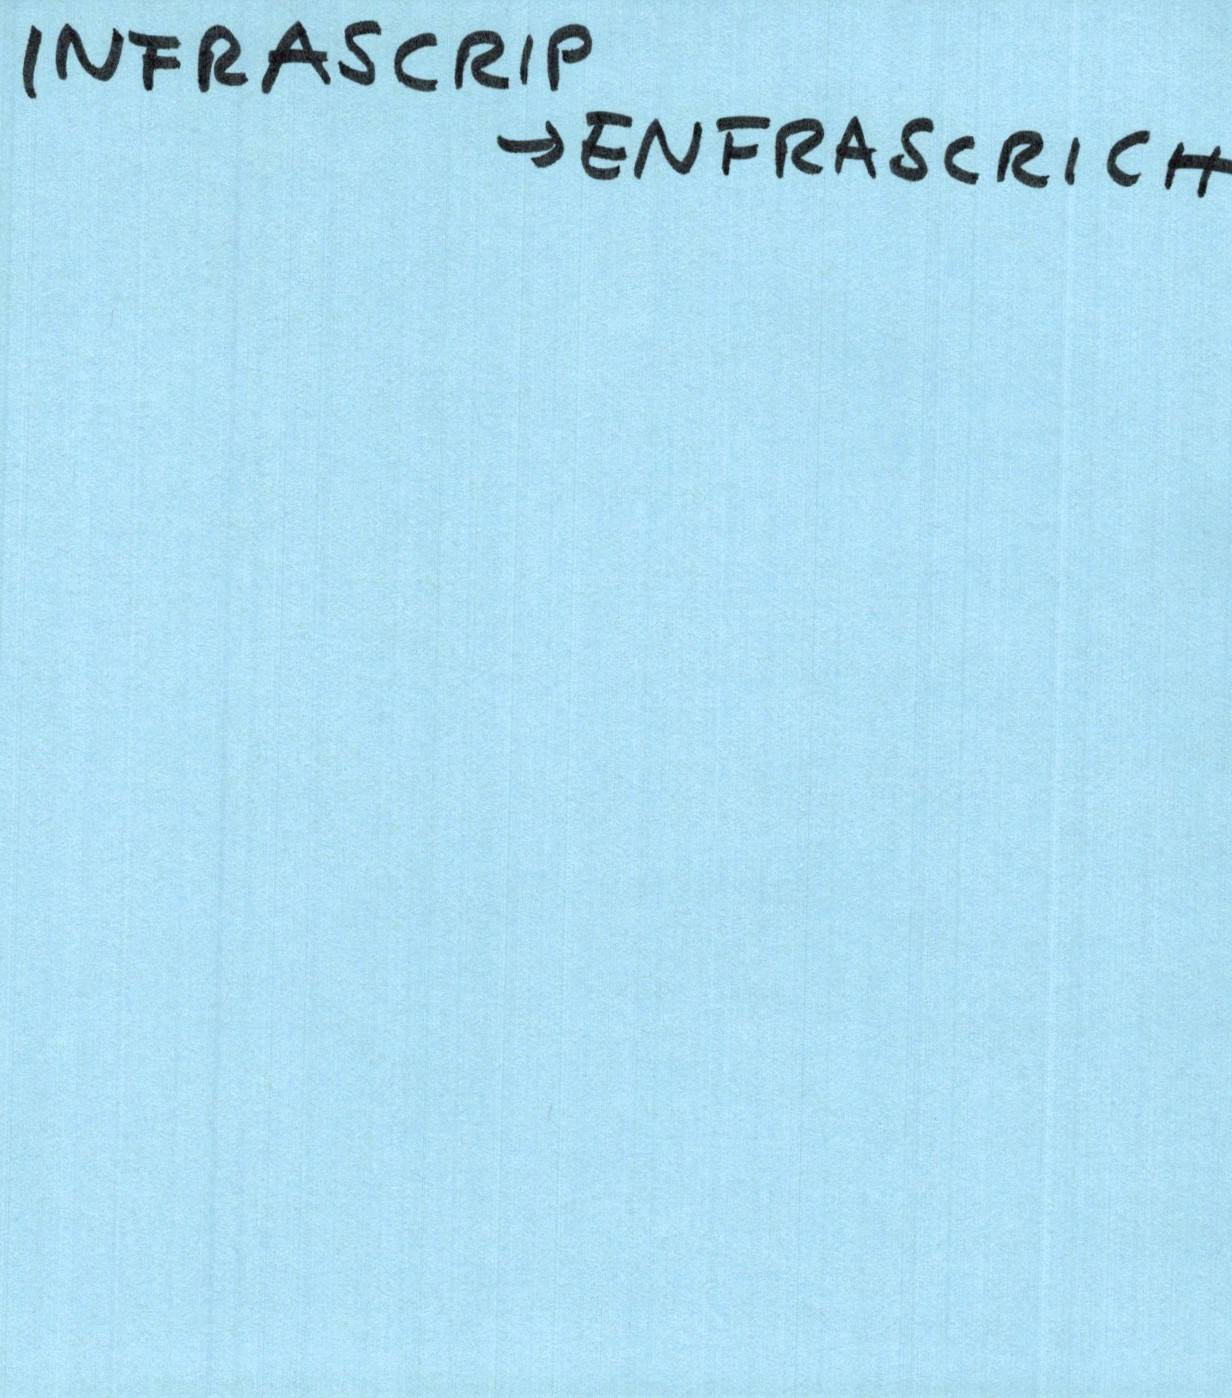 INFRASCRIP
→ENFRASCRICH